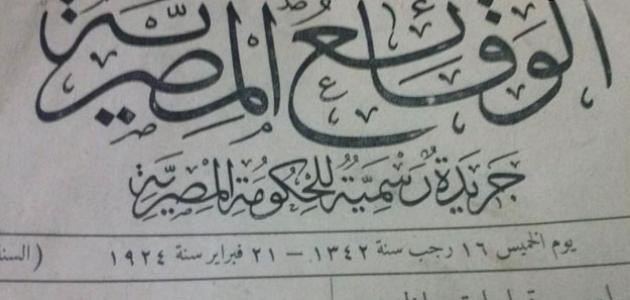 الوقائع المصرية
جريدة رسمية للحكومة المصرية
يوم الخميس ١٦ رجب سنة ١٣٤٢ — ٢١ فبراير سنة ١٩٢٤ (السنة